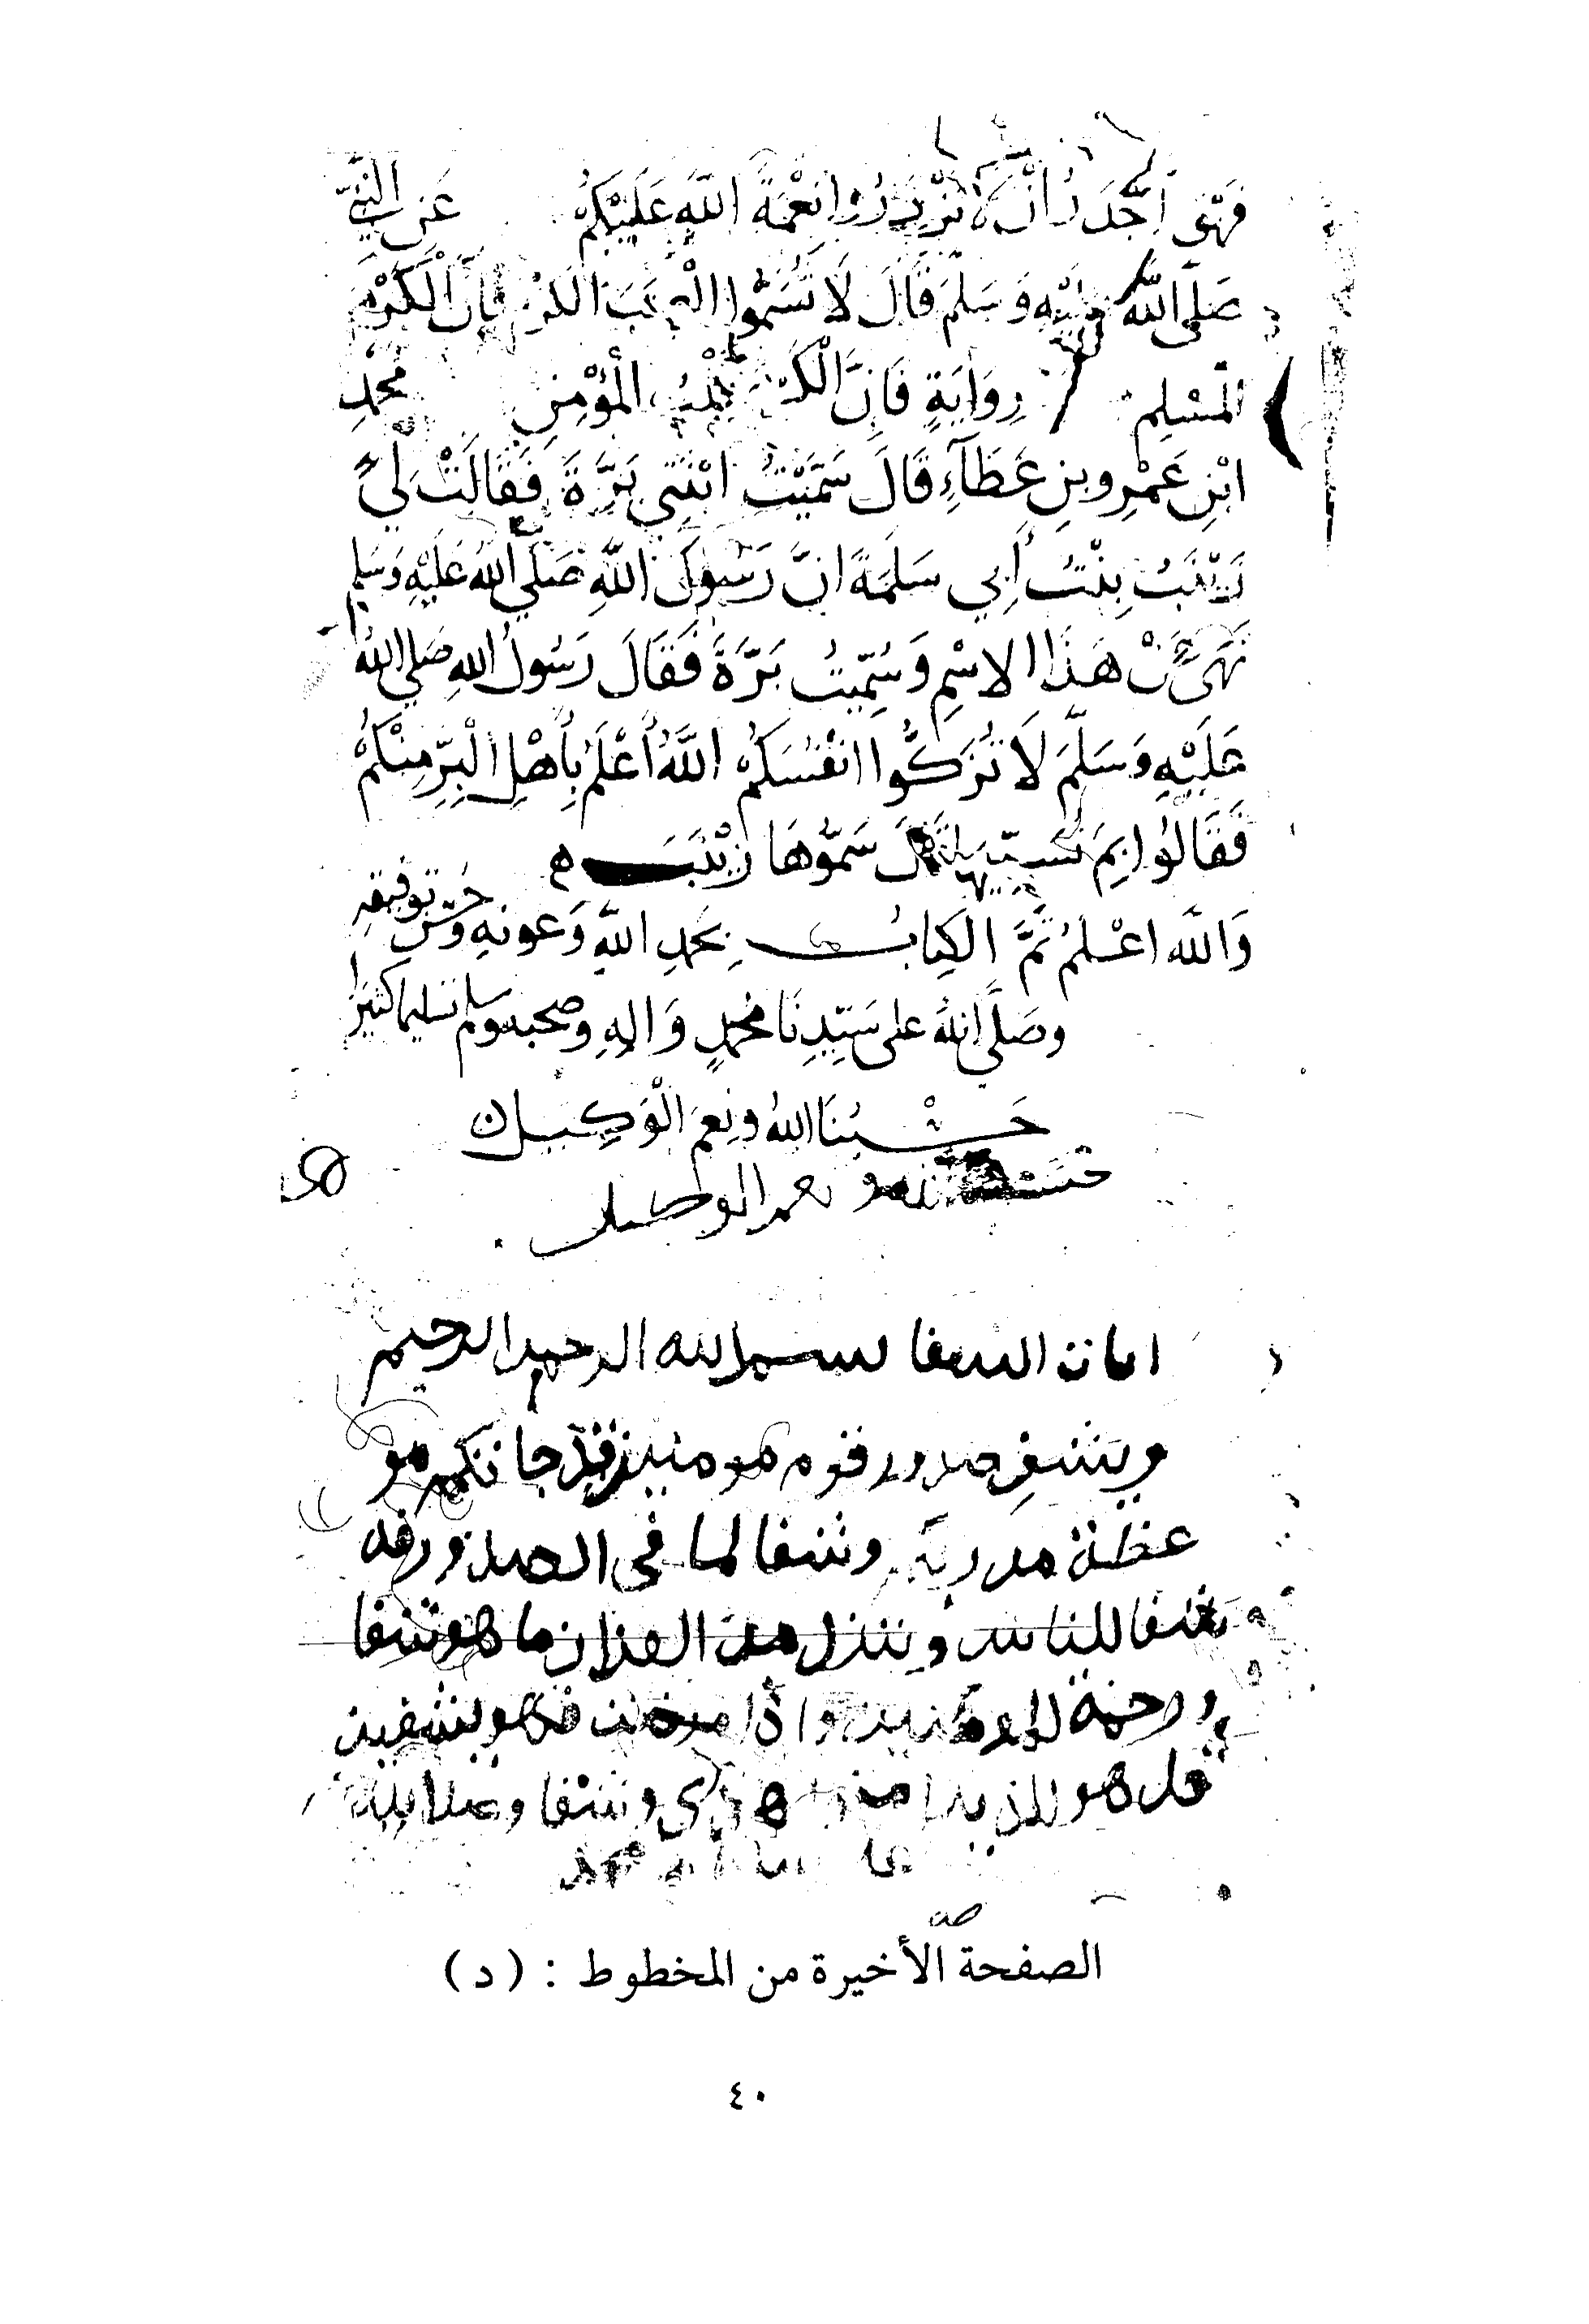 فَهُوَ اَجْدَرُ اَنْ لَا تَزْدَرُوا نِعْمَةَ اللَّهِ عَلَيْكُمْ عَنِ النَّبِيِّ
صَلَّى اللَّهُ عَلَيْهِ وَسَلَّمَ قَالَ لَا تُسَمُّوا الْعِنَبَ الْكَرْمَ فَاِنَّ الْكَرْمَ
الْمُسْلِمُ رِوَايَةٍ فَاِنَّ الْكَرْمَ قَلْبُ الْمُؤْمِنِ مُحَمَّدِ
ابْنِ عَمْرِو بْنِ عَطَآءٍ قَالَ سَمَّيْتُ ابْنَتِي بَرَّةَ فَقَالَتْ لِي
زَيْنَبُ بِنْتُ أَبِي سَلَمَةَ انَّ رَسُولَ اللَّهِ صَلَّى اللَّهُ عَلَيْهِ وَسَلم
نَهَى عَنْ هَذَا الاسْمِ وَسُمِّيتُ بَرَّةَ فَقَالَ رَسُولُ اللهِ صَلى اللهُ
عَلَيْهِ وَسَلَّمَ لَا تُزَكُّوا انْفُسَكُمْ اللَّهُ أَعْلَمُ بِأَهْلِ الْبِرِّ مِنْكُمْ
فَقَالُوا بِمَ نُسَمِّيهَا قَالَ سَمُّوهَا زَيْنَبَ
وَاللَّه اعْلَمُ تَمَّ الكِتَابُ بِحَمْدِ اللَّهِ وَعَونِهِ وَحُسْنِ توفيقه
وصَلَّى اللهُ على سَيِّدِنَا مُحَمَّدٍ وَالِهِ وصحبه وسلم تسليما كثيرًا
حَسْبُنَا اللهُ وَنِعْمَ الْوَكِيل
الله و نعم الوكيل
ايات الشفا بسم الله الرحمن الرحيم
ويشفِ صدور قوم مومنين قد جاتكم مو
عظة من ربكم وشفا لما في الصدور فيه
شفا للناس وننزل من القران ما هو شفا
ورحمة للمومنين واذا مرضت فهو يشفين
قل هو للذين امنوا هدى وشفا وصلى الله
الصفحة الأخيرة من المخطوط : (د)
٤٠